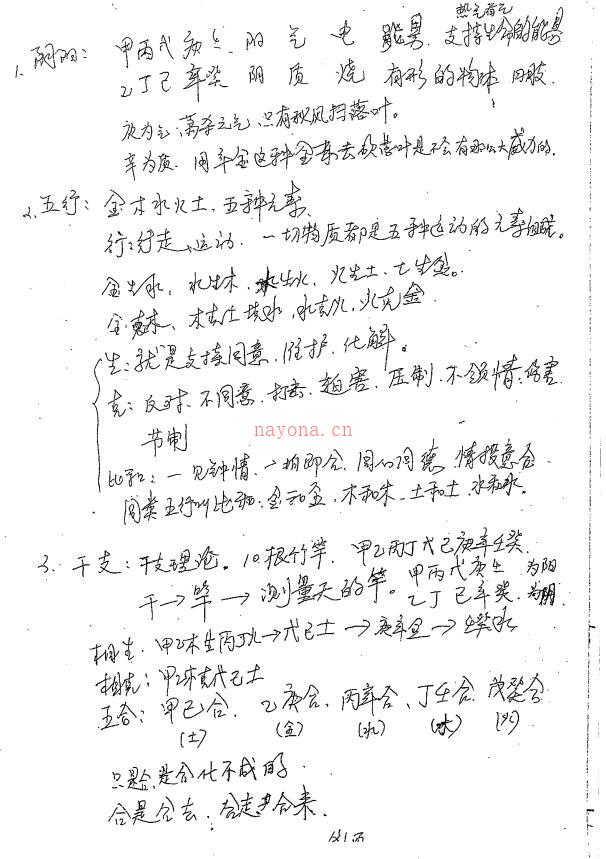 热气暑气
1. 阴阳: 甲丙戊庚壬 阳 气 电 能量. 支持生命的能量
乙丁己辛癸 阴 质 烧 有形的物体 四肢.
庚为气, 萧杀之气, 只有秋风扫落叶.
辛为质. 用辛金这种金属去砍落叶是不会有那么大威力的.
2. 五行: 金木水火土. 五种元素.
行:行走、运动. 一切物质都是五种运动的元素组成.
金生水, 水生木, 木生火, 火生土, 土生金.
金克木、木克土 土克水, 水克火, 火克金
生: 就是支持同意, 维护, 化解.
克: 反对. 不同意, 打击, 迫害, 压制. 不领情. 伤害.
节制
nayona.cn
比和: 一见钟情. 一拍即合, 同心同德 情投意合
同类五行叫比和: 金和金, 木和木, 土和土 水和水.
3. 干支: 干支理论. 10根竹竿. 甲乙丙丁戊己庚辛壬癸.
干→竿→测量天的竿. 甲丙戊庚壬 为阳
乙丁己辛癸. 为阴
相生. 甲乙木生丙丁火→戊己土→庚辛金→壬癸水
相克: 甲乙木克戊己土
五合: 甲己合, 乙庚合, 丙辛合、丁壬合, 戊癸合
(土) (金) (水) (木) (火)
只是合, 是合化不成的.
合是合去, 合走 合来.